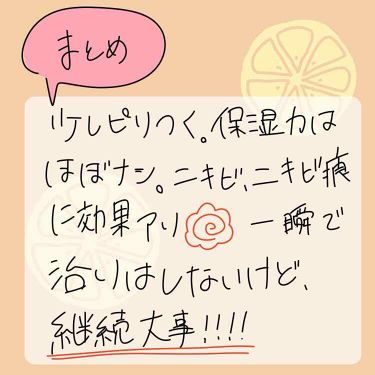 まとめ
少しピリつく。保湿力は
ほぼナシ。ニキビ、ニキビ痕
に効果アリ 一瞬で
治りはしないけど、
継続大事!!!!